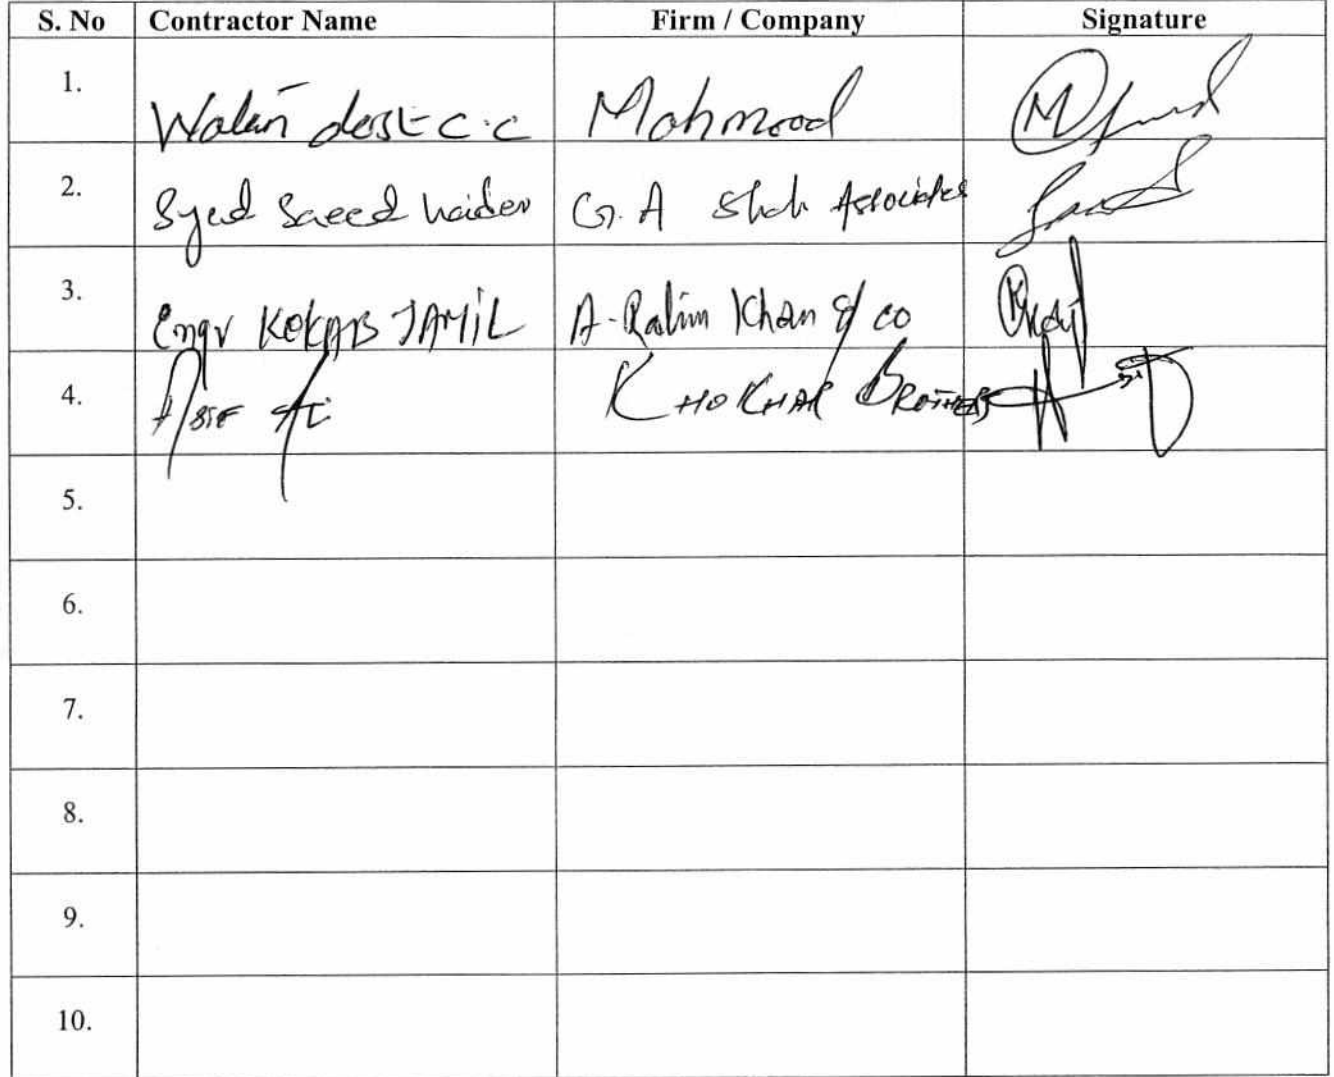 S. No Contractor Name Firm / Company Signature
1. Walan dost c.c Mahmood
2. Syed Saeed haider G.A Shah Associates
3. Engr KOKAB JAMiL A-Rahim Khan & co
4. ASIF Ali KHOKHAR BROTHERS
5.
6.
7.
8.
9.
10.